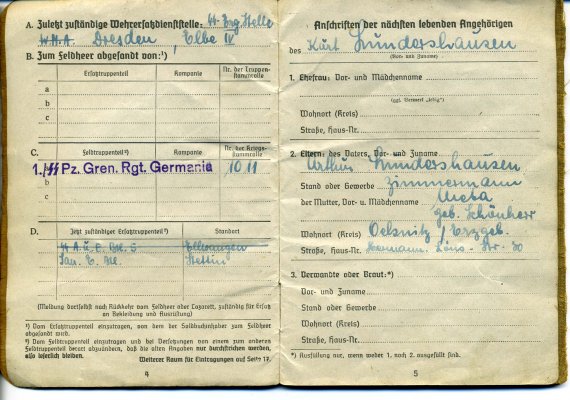 A. Zuletzt zuständige Wehrersatzdienststelle: ᛋᛋ-Erg. Stelle
Dresden, Elbe IV
B. Zum Feldheer abgesandt von:¹)
Ersatztruppenteil Kompanie Nr. der Truppen-
stammrolle
a
b
c
C.
Feldtruppenteil²) Kompanie Nr. der Kriegs-
stammrolle
1./ᛋᛋ Pz. Gren. Rgt. Germania 1011
b
c
D.
Jetzt zuständiger Ersatztruppenteil²) Standort
ᛋᛋ A.u.E. Btl. 5 Ellwangen
San. E. Btl. Stettin
(Meldung dortselbst nach Rückkehr vom Feldheer oder Lazarett, zuständig für Ersatz
an Bekleidung und Ausrüstung)
¹) Vom Ersatztruppenteil einzutragen, von dem der Soldbuchinhaber zum Feldheer
abgesandt wird.
²) Vom Feldtruppenteil einzutragen und bei Versetzungen von einem zum anderen
Feldtruppenteil derart abzuändern, daß die alten Angaben nur durchstrichen werden,
also leserlich bleiben.
Weiterer Raum für Eintragungen auf Seite 17.
4
Anschriften der nächsten lebenden Angehörigen
des Kurt Lundershausen
(Vor- und Zuname)
1. Ehefrau: Vor- und Mädchenname
(ggf. Vermerk „ledig“)
Wohnort (Kreis)
Straße, Haus-Nr.
2. Eltern: des Vaters, Vor- und Zuname
Arthur Lundershausen
Stand oder Gewerbe Zimmermann
der Mutter, Vor- u. Mädchenname Meta
geb. Schönherr
Wohnort (Kreis) Oelsnitz / Erzgeb.
Straße, Haus-Nr. Hermann-Löns-Str. 30
3. Verwandte oder Braut:*)
Vor- und Zuname
Stand oder Gewerbe
Wohnort (Kreis)
Straße, Haus-Nr.
*) Ausfüllung nur, wenn weder 1. noch 2. ausgefüllt sind.
5